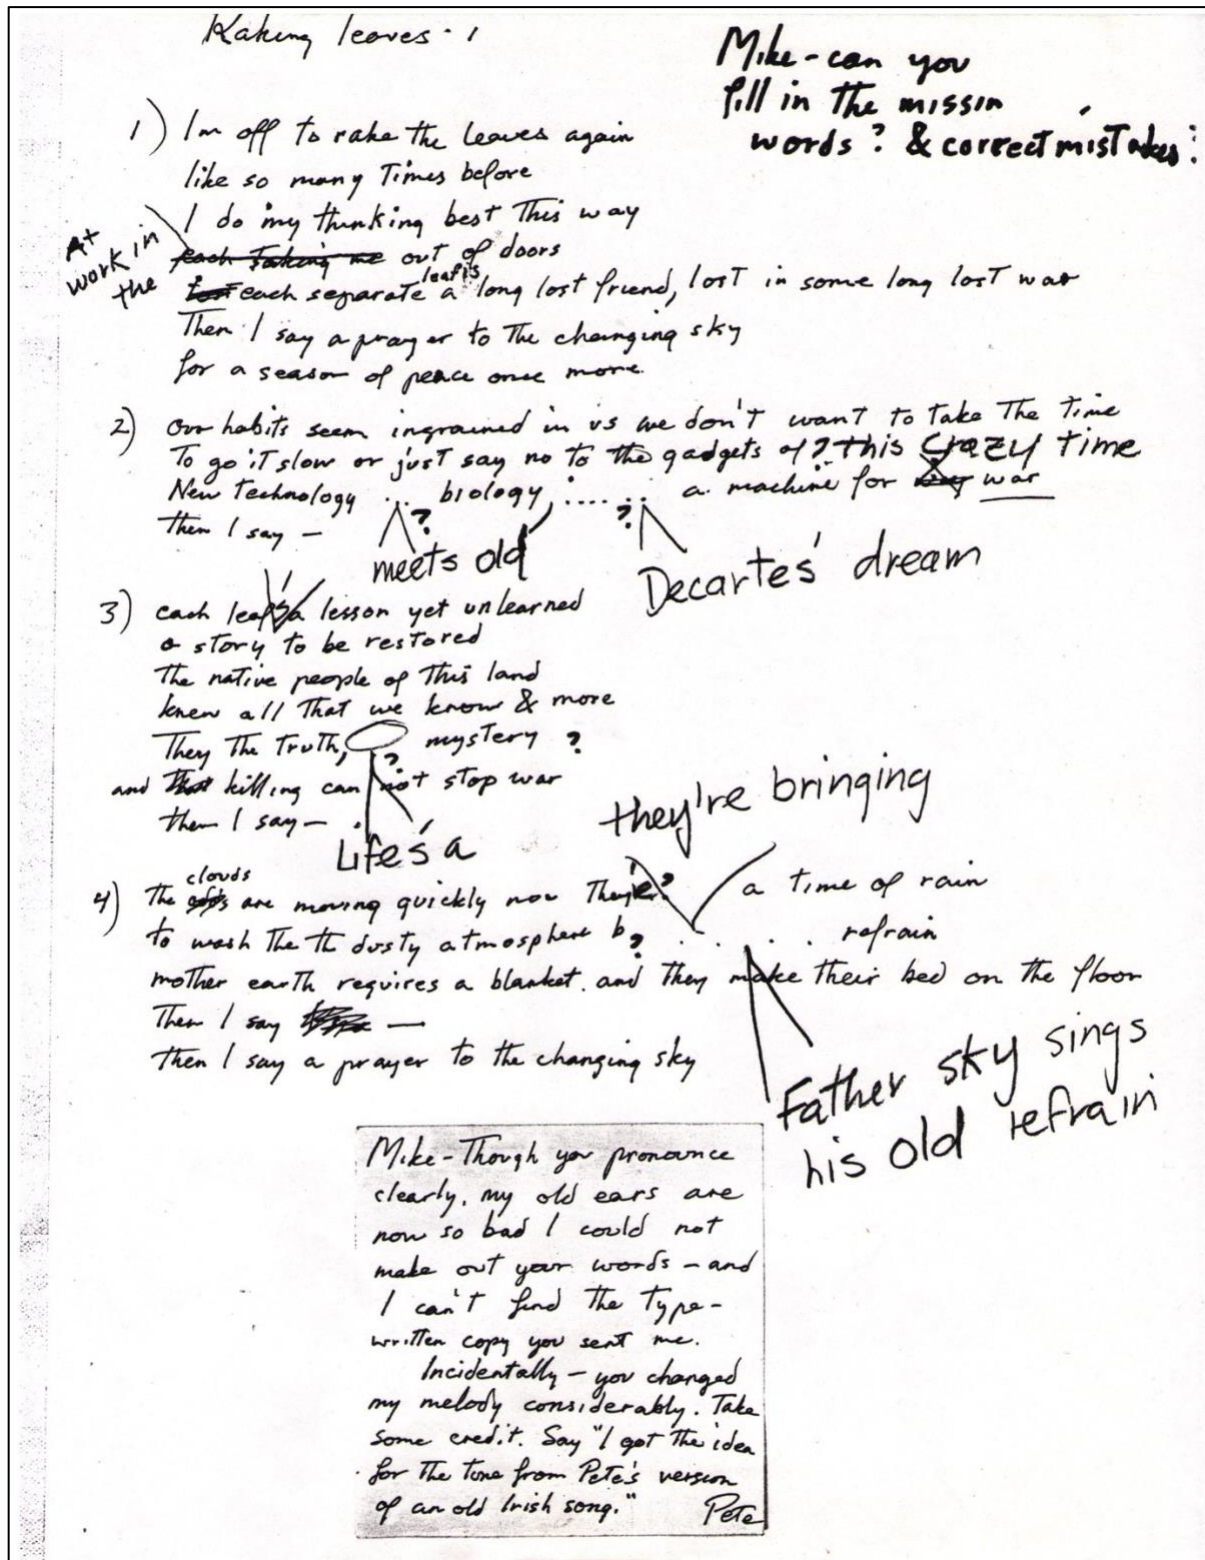 Raking leaves
Mike - can you
fill in the missin
words? & correct mistakes:
1) Im off to rake the leaves again
like so many Times before
I do my thinking best This way
At
work in
the
each taking me out of doors
each separate leaf is a long lost friend, lost in some long lost war
Then I say a prayer to the changing sky
for a season of peace once more
2) our habits seem ingrained in us we don't want to take the time
To go it slow or just say no to the gadgets of? this Crazy time
New Technology ... biology, ...... a machine for war
? ?
then I say -
meets old
Decartes' dream
3) each leaf's a lesson yet unlearned
a story to be restored
The native people of This land
knew all That we know & more
They The Truth, mystery ?
?
and that killing can not stop war
then I say -
Life's a
they're bringing
4) The clouds are moving quickly now They're? a time of rain
to wash the th dusty atmosphere b? . . . . refrain
mother earth requires a blanket. and they make their bed on the floor
Then I say —
then I say a prayer to the changing sky
Father sky sings
his old refrain
Mike - Though you pronounce
clearly, my old ears are
now so bad I could not
make out your words - and
I can't find the Type-
written copy you sent me.
Incidentally - you changed
my melody considerably. Take
some credit. Say "I got the idea
for the tune from Pete's version
of an old Irish song."
Pete